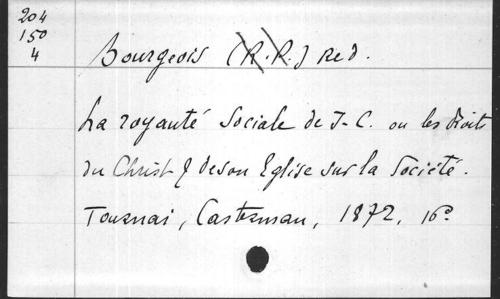 204
150
4
Bourgeois (R.P.) red.
La royauté Sociale de J-C. ou les Droits
du Christ & de son Eglise sur la Société.
Tournai, Casterman, 1872, 16º